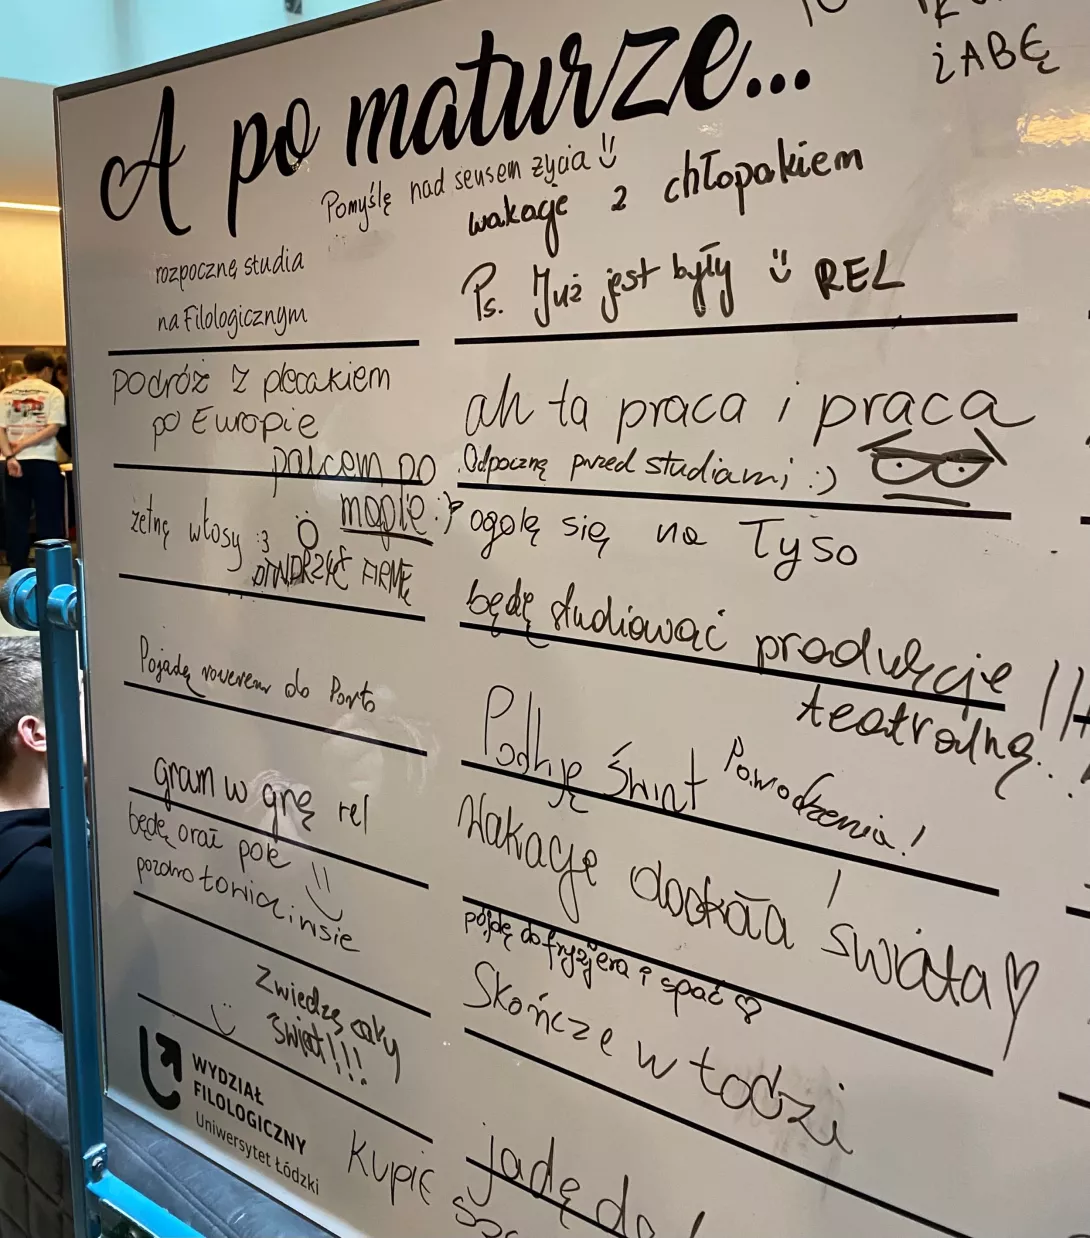 A po maturze...
Pomyślę nad sensem życia
wakacje z chłopakiem
Ps. Już jest były REL
ŻABĘ
rozpocznę studia
na Filologicznym
podróż z plecakiem
po Europie
palcem po
mapie :)
zetnę włosy :3
OTWORZYĆ FIRMĘ
Pojadę rowerem do Porto
gram w grę rel
będę orał pole
pozdro
Zwiedzę cały
świat!!!
ah ta praca i praca
Odpocznę przed studiami :)
ogolę się na łyso
będę studiować produkcję
teatralną
Podbiję świat
Powodzenia!
Wakacje dookoła świata
pójdę do fryzjera i spać
Skończe w łodzi
jadę do
KUPIĆ
WYDZIAŁ
FILOLOGICZNY
Uniwersytet Łódzki